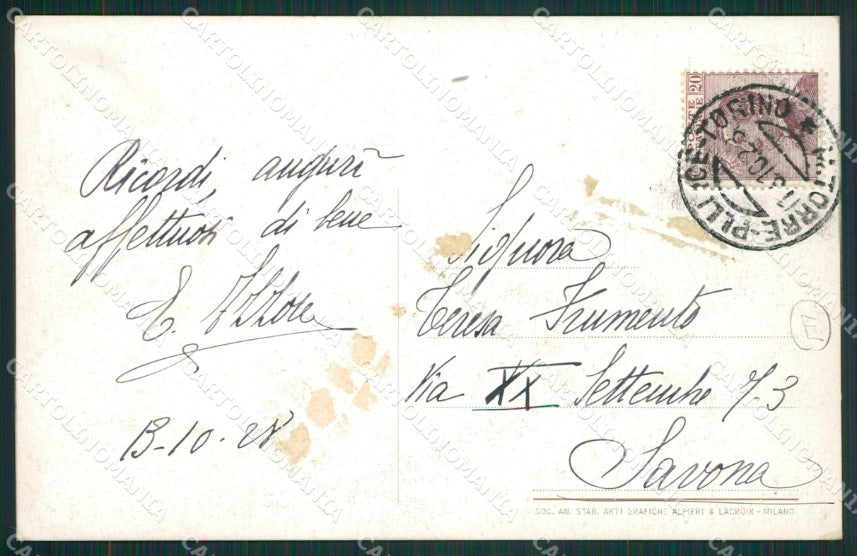 Ricordi, auguri
affettuosi di bene
E. Ettore
13-10-28
Signora
Teresa Frumento
Via XX Settembre 7-3
Savona
SOC. AN. STAB. ARTI GRAFICHE ALFIERI & LACROIX - MILANO
20
TORRE-PELLICE-TORINO
CARTOLINOMANIA